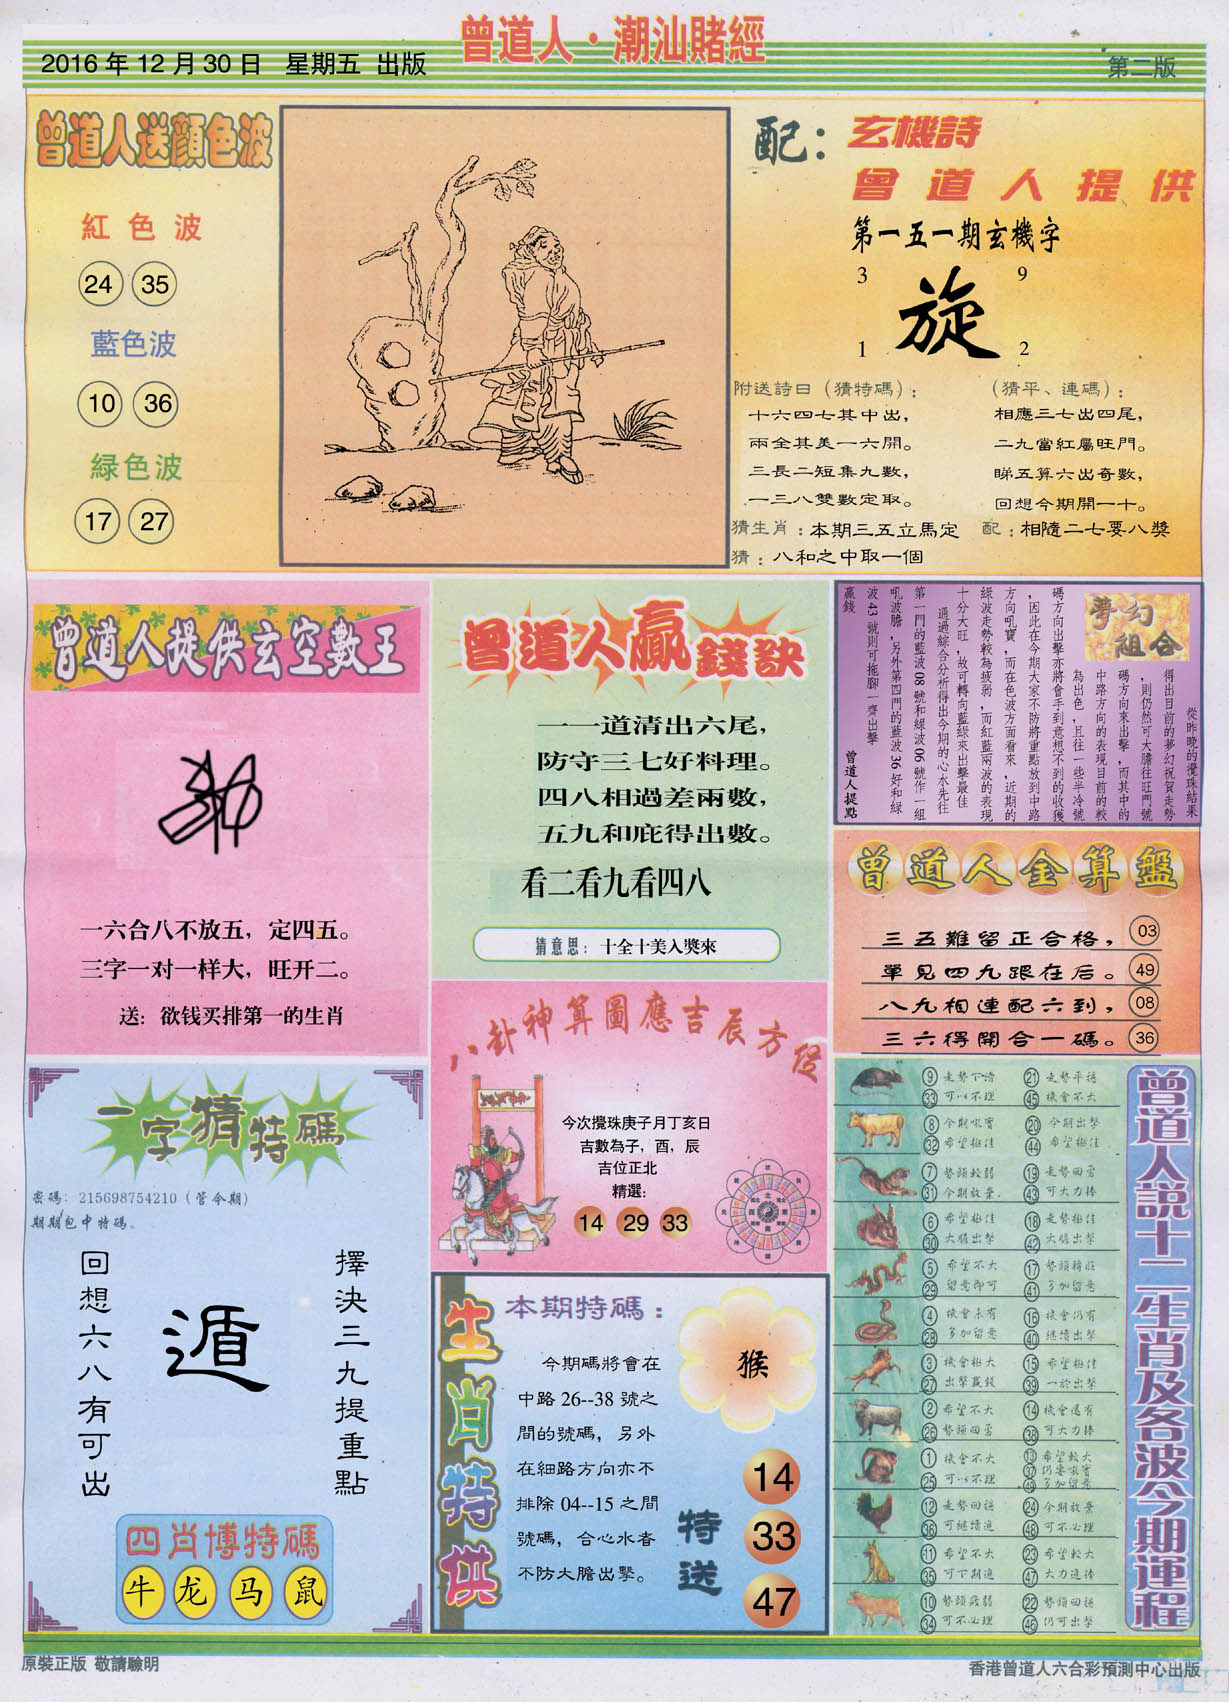 曾道人·潮汕賭經
2016 年 12 月 30 日 星期五 出版
第二版
曾道人送顏色波
紅色波
24 35
藍色波
10 36
緑色波
17 27
配：玄機詩
曾道人提供
第一五一期玄機字
3 9
旋
1 2
附送詩曰（猜特碼）：
十六四七其中出，
兩全其美一六開。
三長二短集九數，
一三八雙數定取。
（猜平、連碼）：
相應三七出四尾，
二九當紅屬旺門。
睇五算六出奇數，
回想今期開一十。
猜生肖：本期三五立馬定
配：相隨二七要八獎
猜：八和之中取一個
曾道人提供玄空數王
一六合八不放五，定四五。
三字一对一样大，旺开二。
送：欲钱买排第一的生肖
曾道人贏錢訣
一一道清出六尾，
防守三七好料理。
四八相過差兩數，
五九和庇得出數。
看二看九看四八
猜意思：十全十美入獎來
夢幻
組合
從昨晚的攪珠結果
得出目前的夢幻祝賀走勢
，則仍然可大膽往旺門號
碼方向來出擊，而其中的
中路方向的表現目前的較
為出色，且往一些半冷號
碼方向出擊亦將會手到意想不到的收獲
，因此在今期大家不防將重點放到中路
方向吼寶，而在色波方面看來，近期的
綠波走勢較為疲弱，而紅藍兩波的表現
十分大旺，故可轉向藍綠來出擊最佳
通過綜合分析得出今期的心水先往
第一門的藍波 08 號和綠波 06 號作一組
吼波膽，另外第四門的藍波 36 好和綠
波 43 號則可拖腳一齊出擊
贏錢
曾道人提點
曾道人金算盤
三五難留正合格，03
單見四九跟在后。49
八九相連配六到，08
三六得開合一碼。36
八卦神算圖應吉辰方位
今次攪珠庚子月丁亥日
吉數為子，酉，辰
吉位正北
精選：
14 29 33
一字猜特碼
密碼：215698754210（管今期）
期期包中特碼。
擇決三九提重點
遁
回想六八有可出
四肖博特碼
牛 龙 马 鼠
生肖特供
本期特碼：
今期碼將會在
中路 26--38 號之
間的號碼，另外
在細路方向亦不
排除 04--15 之間
號碼，合心水者
不防大膽出擊。
猴
特送
14
33
47
曾道人説十二生肖及各波今期運程
9 走勢下滑 21 走勢平穩
33 可以不理 45 機會不大
8 今期吼寶 20 今期出擊
32 希望極佳 44 希望極佳
7 勢頭較弱 19 走勢回勇
31 今期放棄 43 可大力捧
6 希望極佳 18 走勢極佳
30 大膽出擊 42 大膽出擊
5 希望不大 17 勢頭轉旺
29 留意即可 41 多加留意
4 機會未有 16 機會仍有
28 多加留意 40 繼續出擊
3 機會極大 15 希望極佳
27 出擊贏錢 39 一於出擊
2 希望不大 14 機會還有
26 勢頭回勇 38 可大力捧
1 機會不大 13 希望較大
37 仍要吼寶
25 可以不理 49 多加留意
12 走勢回穩 24 今期放棄
36 可繼續追 48 可不必理
11 希望不大 23 希望較大
35 可下期追 47 大力追捧
10 勢頭疲弱 22 勢頭回穩
34 可不必理 46 仍可出擊
原裝正版 敬請驗明
香港曾道人六合彩預測中心出版